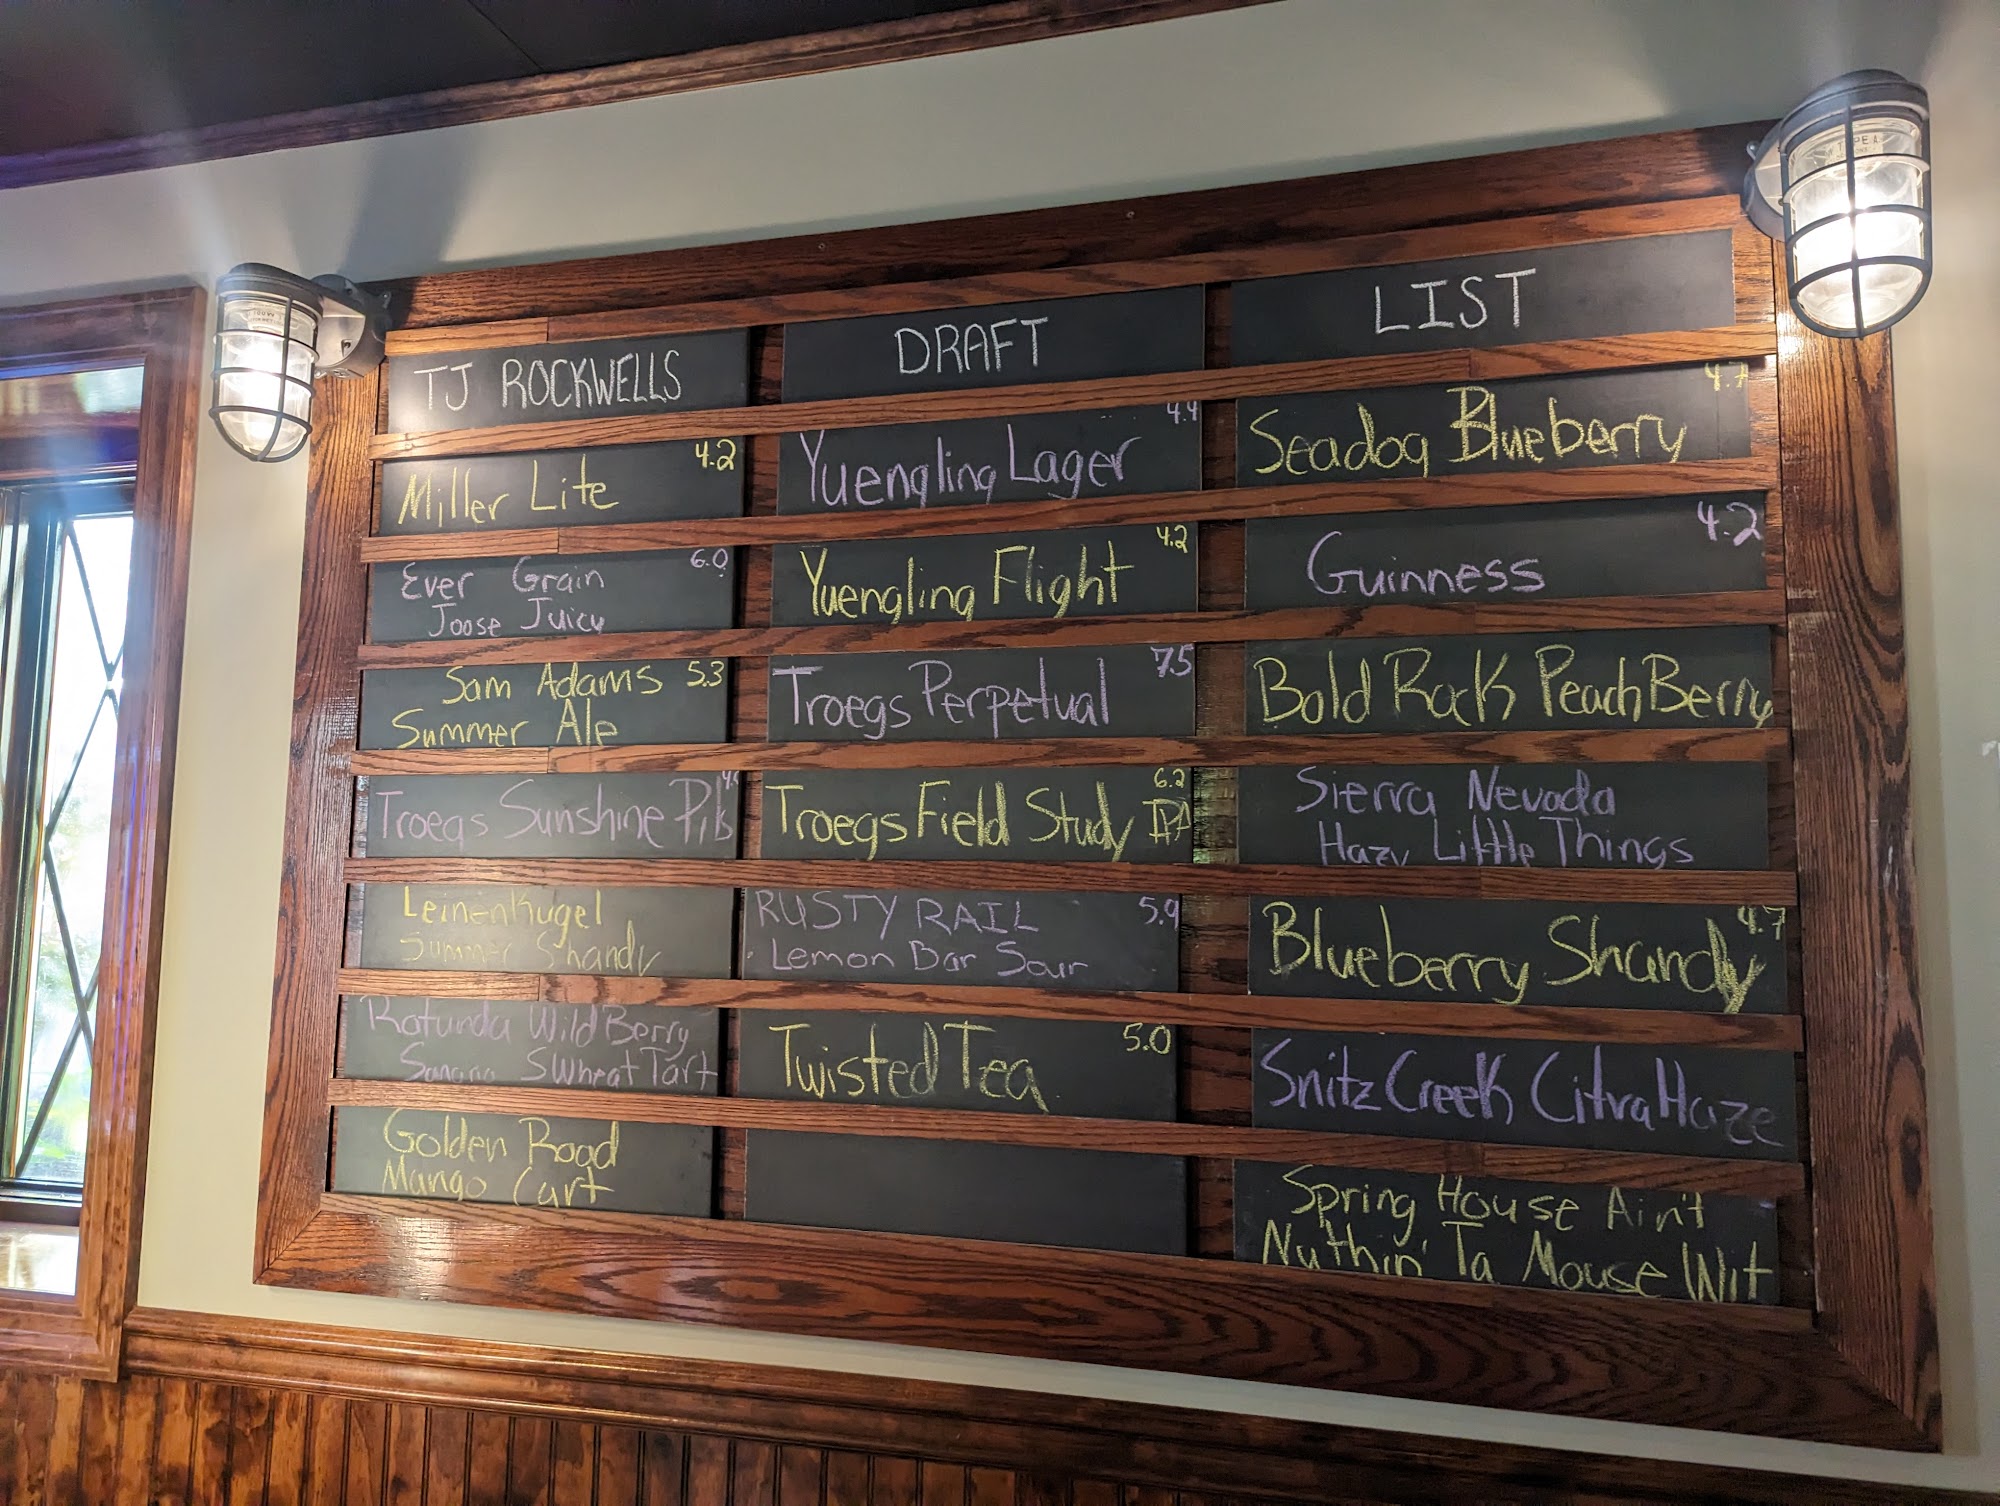 TJ ROCKWELLS
DRAFT
LIST
Miller Lite 4.2
Ever Grain 6.0
Joose Juicy
Sam Adams 5.3
Summer Ale
Troegs Sunshine Pils
Leinenkugel
Summer Shandy
Rotunda Wild Berry
SWheat Tart
Golden Road
Mango Cart
Yuengling Lager 4.4
Yuengling Flight 4.2
Troegs Perpetual 7.5
Troegs Field Study IPA 6.2
RUSTY RAIL 5.9
Lemon Bar Sour
Twisted Tea 5.0
Seadog Blueberry 4.7
Guinness 4.2
Bold Rock Peach Berry
Sierra Nevada
Hazy Little Things
Blueberry Shandy 4.7
Snitz Creek Citra Haze
Spring House Ain't
Nuthin' Ta Mouse Wit